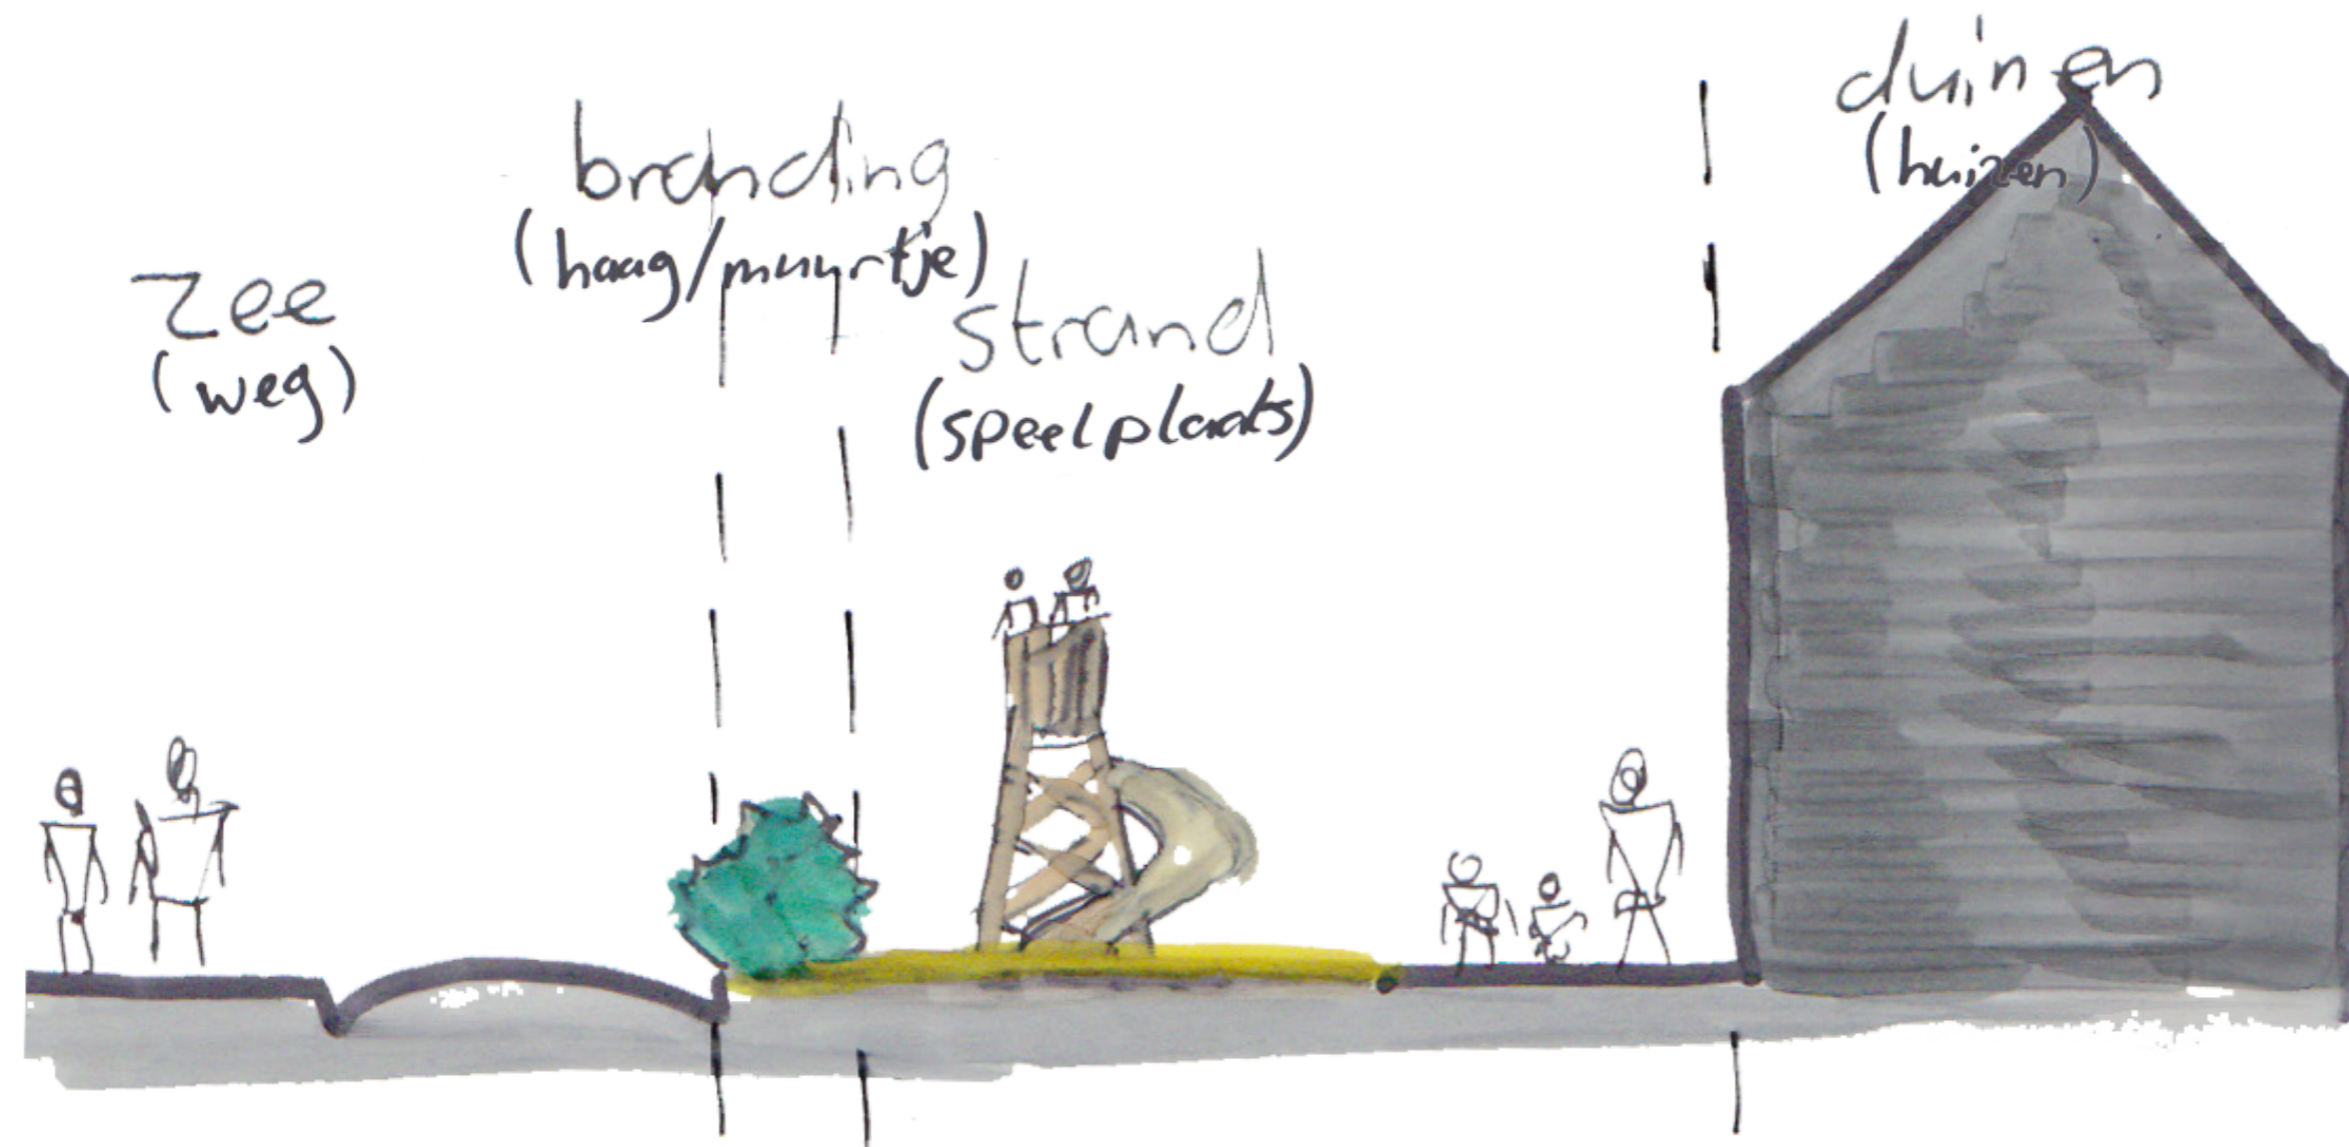 zee
(weg)
branding
(haag/muurtje)
strand
(speelplaats)
duinen
(huizen)